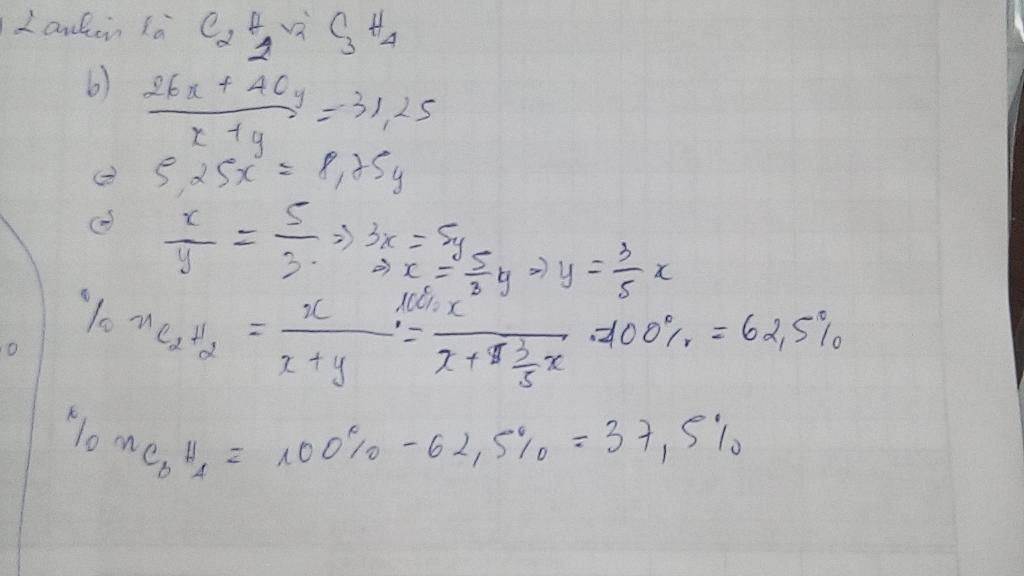 2 ankin là C2H2 và C3H4
b) (26x + 40y)/(x + y) = 31,25
⇔ 5,25x = 8,75y
⇔ x/y = 5/3 ⇒ 3x = 5y
⇒ x = 5/3 y ⇒ y = 3/5 x
% nC2H2 = x/(x + y) .100% = x/(x + 3/5 x) .100% = 62,5%
% nC3H4 = 100% - 62,5% = 37,5%